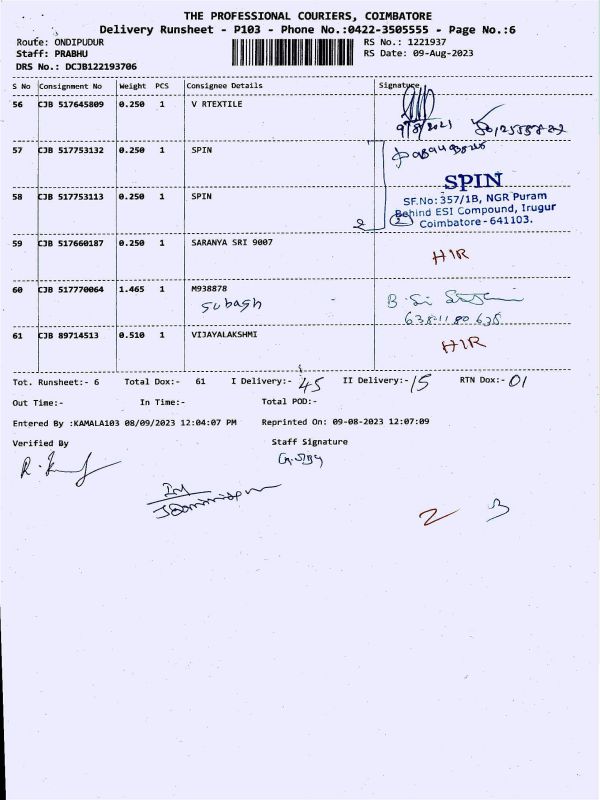 THE PROFESSIONAL COURIERS, COIMBATORE
Delivery Runsheet - P103 - Phone No.:0422-3505555 - Page No.:6
Route: ONDIPUDUR RS No.: 1221937
Staff: PRABHU RS Date: 09-Aug-2023
DRS No.: DCJB122193706
S No Consignment No Weight PCS Consignee Details Signature
56 CJB 517645809 0.250 1 V RTEXTILE
57 CJB 517753132 0.250 1 SPIN
58 CJB 517753113 0.250 1 SPIN
SPIN
SF.No: 357/1B, NGR Puram
Behind ESI Compound, Irugur
Coimbatore - 641103.
2
59 CJB 517660187 0.250 1 SARANYA SRI 9007 HIR
60 CJB 517770064 1.465 1 M938878
Subash
61 CJB 89714513 0.510 1 VIJAYALAKSHMI HIR
Tot. Runsheet:- 6 Total Dox:- 61 I Delivery:- 45 II Delivery:- 15 RTN Dox:- 01
Out Time:- In Time:- Total POD:-
Entered By :KAMALA103 08/09/2023 12:04:07 PM Reprinted On: 09-08-2023 12:07:09
Verified By Staff Signature
2 3